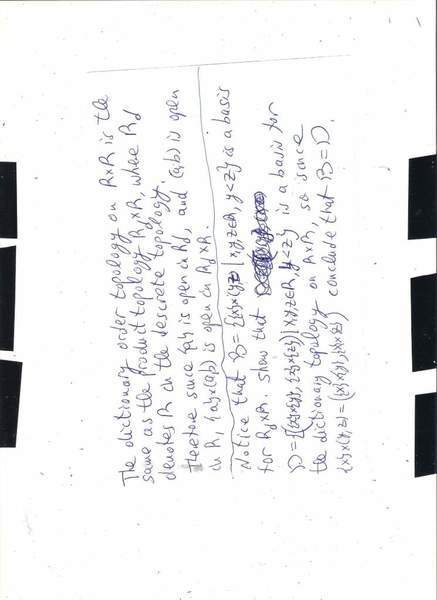 The dictionary order topology on R×R is the
same as the product topology R_d×R, where R_d
denotes R in the descrete topology.
Therfore since {a} is open in R_d, and (a,b) is open
in R, {a}×(a,b) is open in R_d×R.
Notice that B={{x}×(y,z) | x,y,z∈R, y<z} is a basis
for R_d×R. Show that
D={({x}×{y}, {x}×{z}) | x,y,z∈R, y<z} is a basis for
the dictionary topology on R×R, so since
{x}×(y,z)=({x}×{y},{x}×{z}) conclude that B=D.